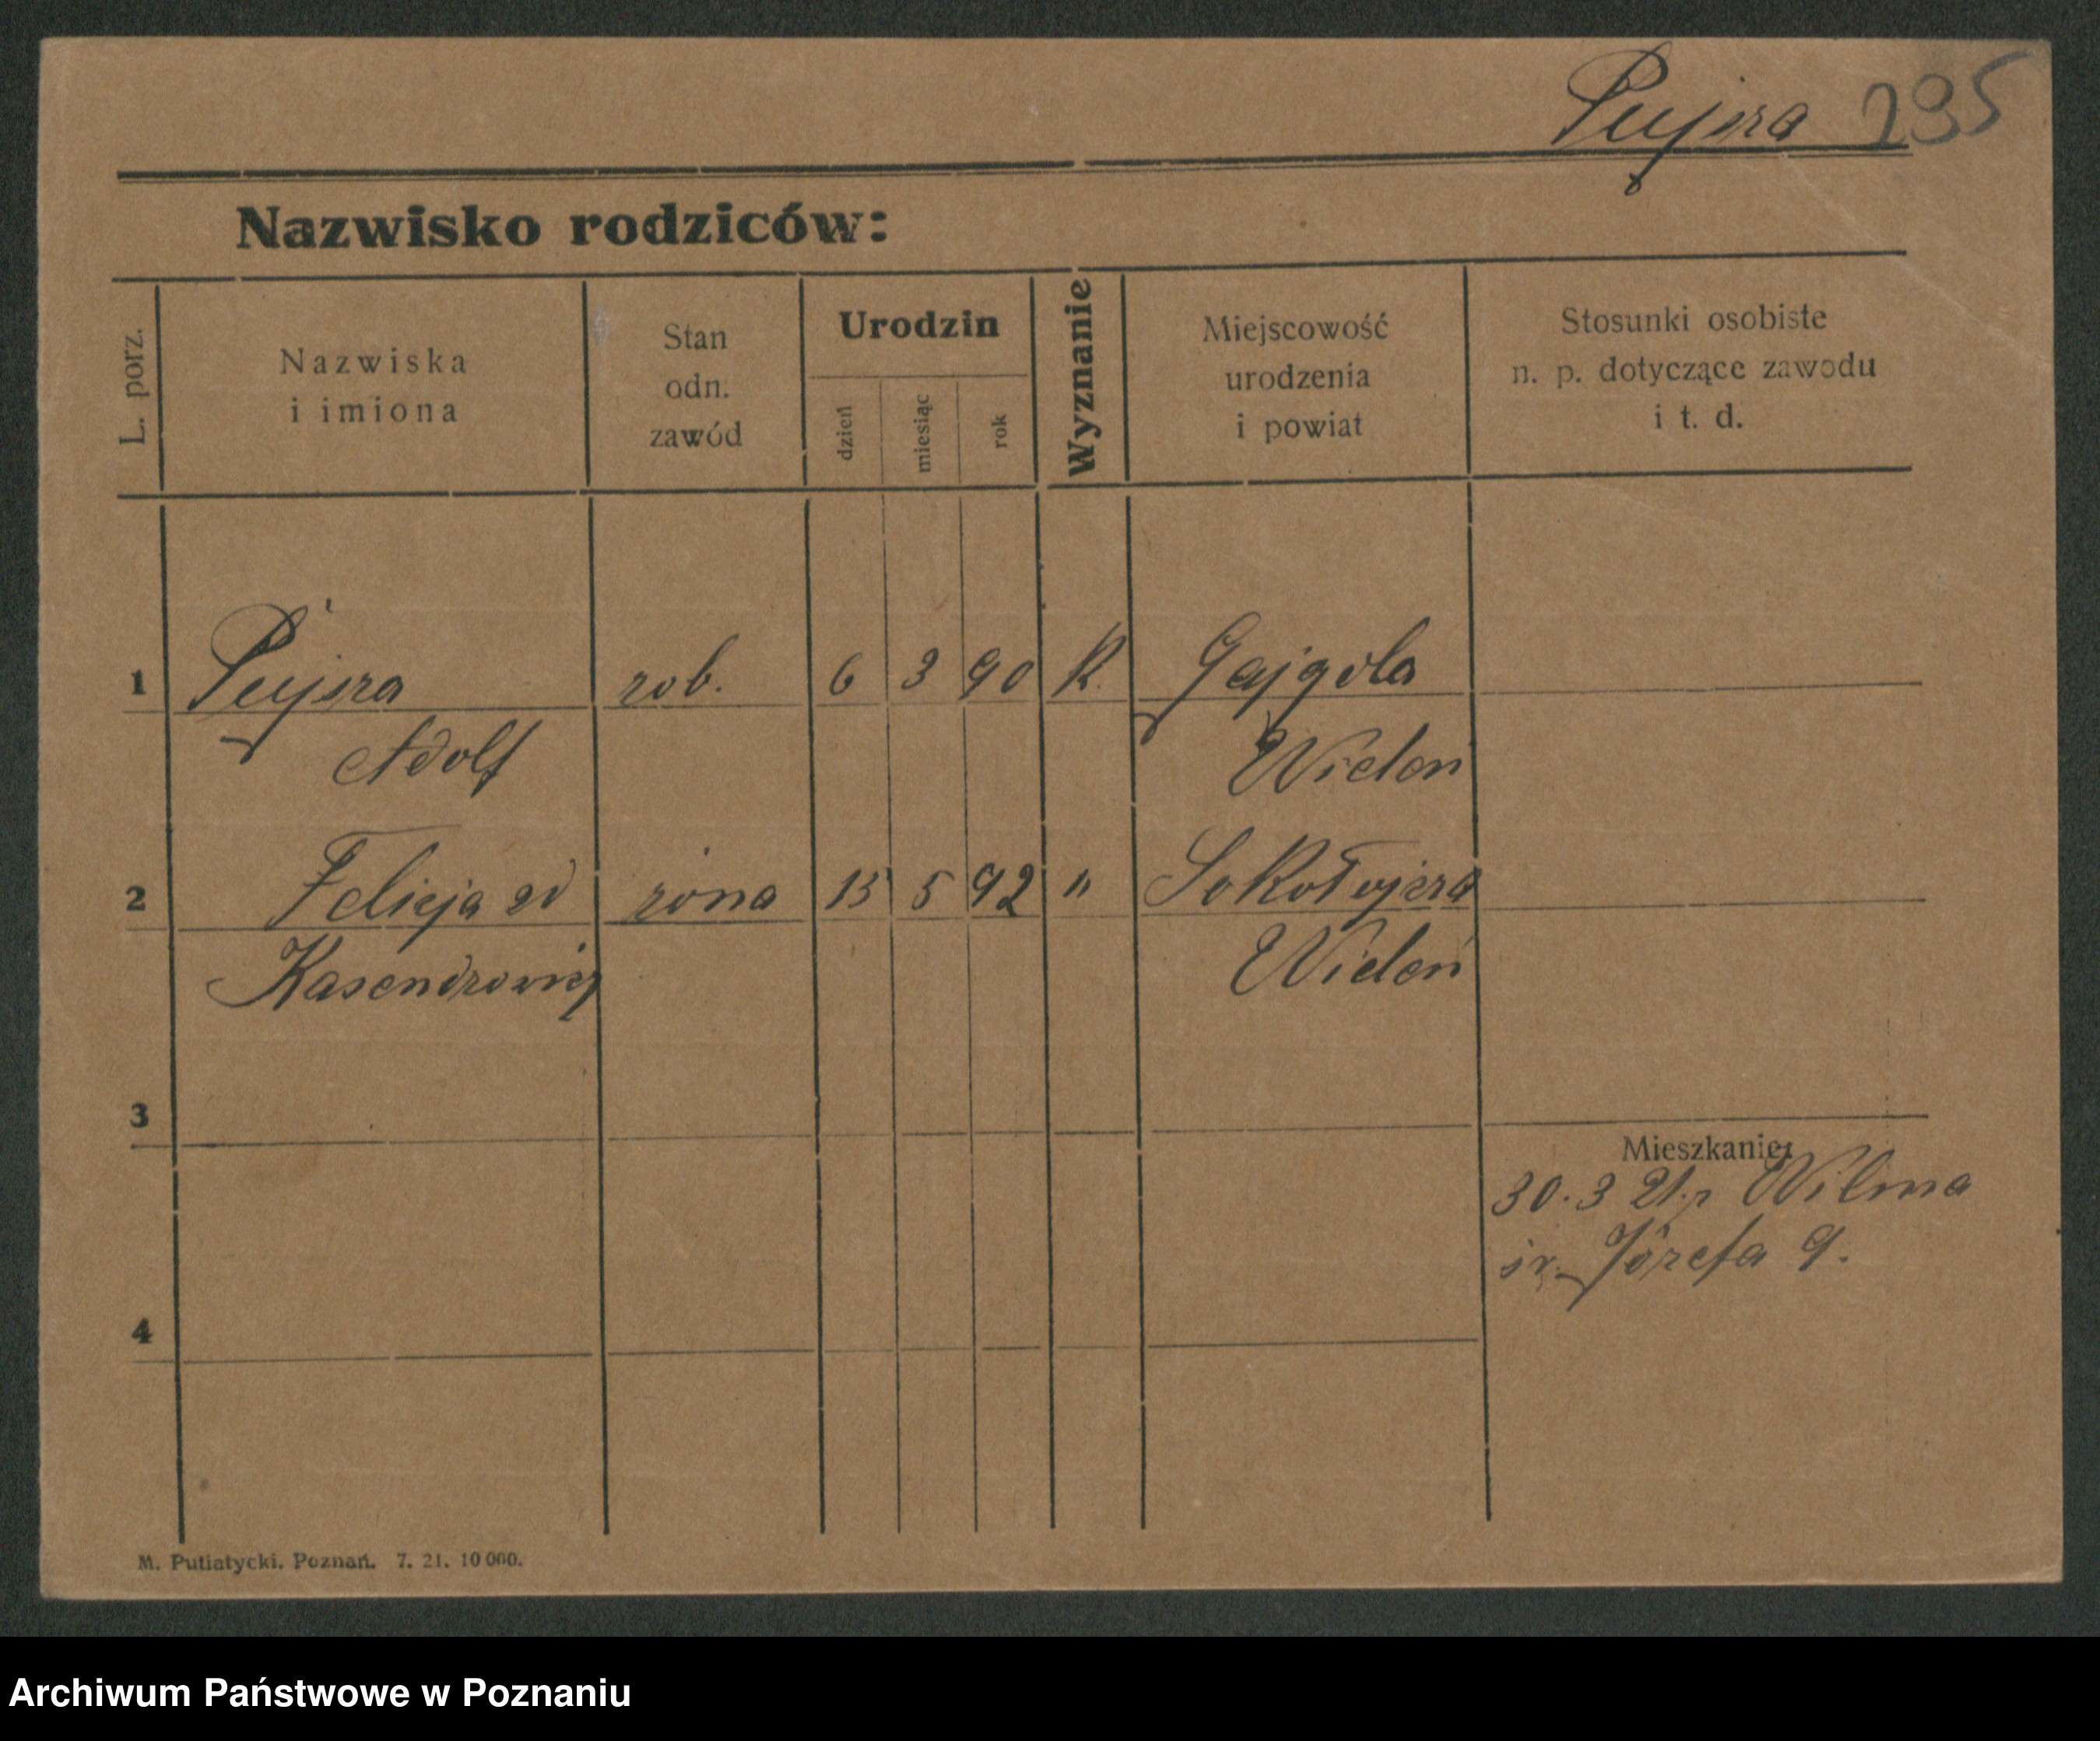 Pujsra 295
Nazwisko rodziców:
L. porz.
Nazwiska
i imiona
Stan
odn.
zawód
Urodzin
dzień
miesiąc
rok
Wyznanie
Miejscowość
urodzenia
i powiat
Stosunki osobiste
n. p. dotyczące zawodu
i t. d.
1 Pujsra rob. 6 3 90 K.
Adolf Wieleń
2 Felicja żona 15 5 92 "
Kasendrowicz Wieleń
3
Mieszkanie:
30.3 21. Wilma
św. Józefa 9.
4
M. Putiatycki. Poznań. 7. 21. 10 000.
Archiwum Państwowe w Poznaniu